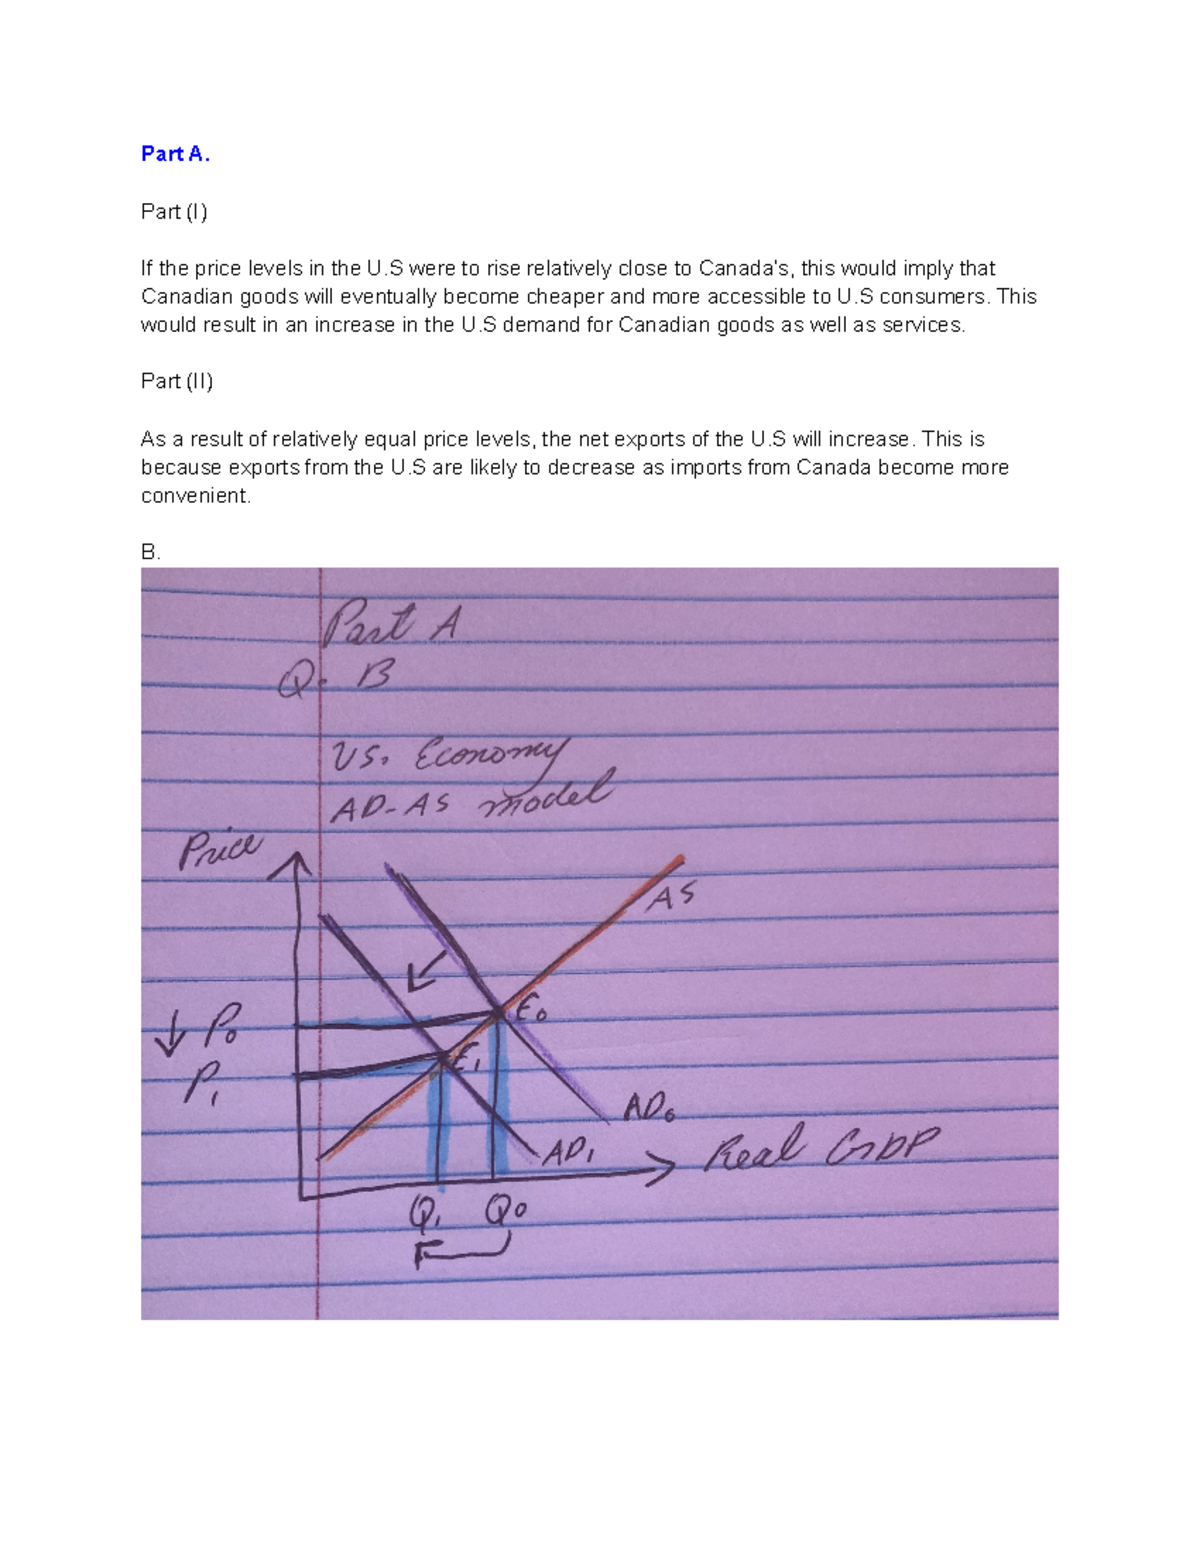 Part A.
Part (I)
If the price levels in the U.S were to rise relatively close to Canada's, this would imply that
Canadian goods will eventually become cheaper and more accessible to U.S consumers. This
would result in an increase in the U.S demand for Canadian goods as well as services.
Part (II)
As a result of relatively equal price levels, the net exports of the U.S will increase. This is
because exports from the U.S are likely to decrease as imports from Canada become more
convenient.
B.
Part A
Q. B
US. Economy
AD-AS model
Price
AS
P₀
E₀
E₁
P₁
AD₀
AD₁
Real GDP
Q₁ Q₀